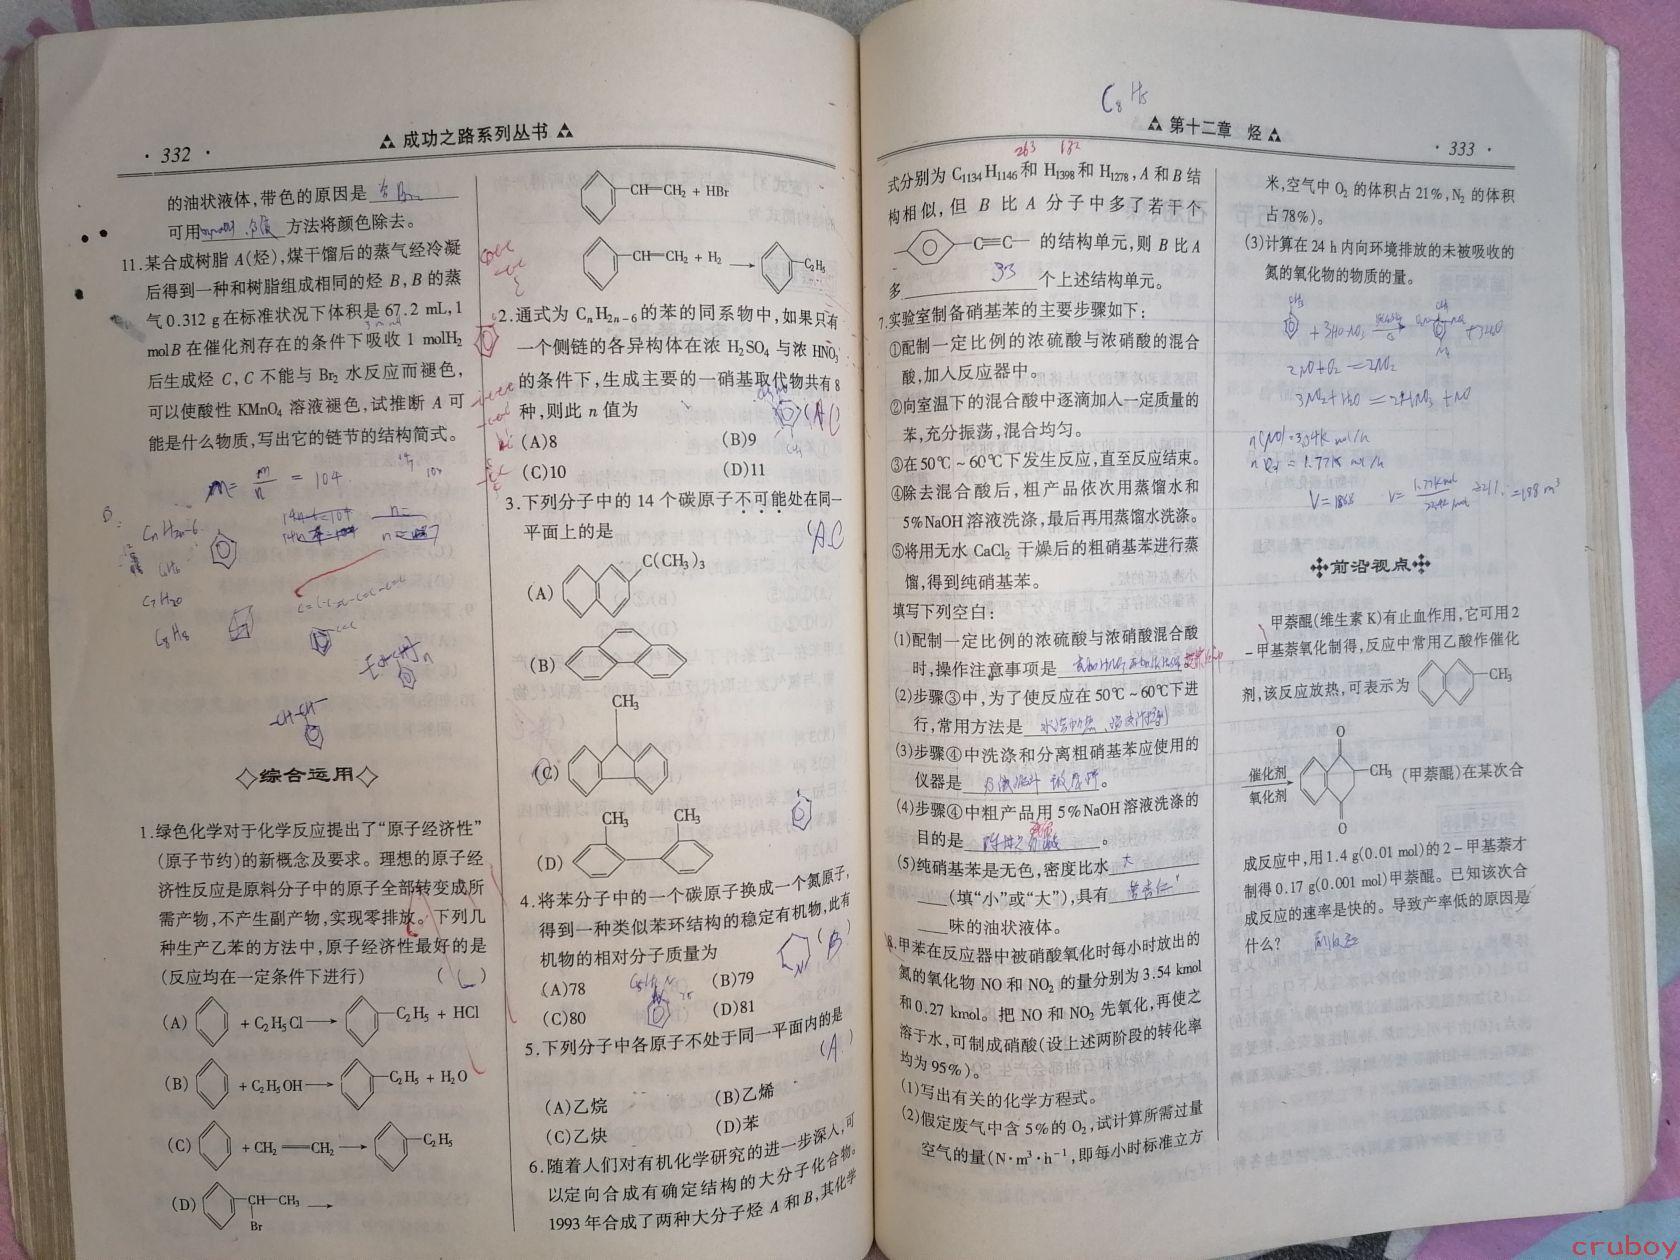 · 332 ·
成功之路系列丛书
的油状液体，带色的原因是 含Br₂
可用 方法将颜色除去。
11.某合成树脂 A(烃)，煤干馏后的蒸气经冷凝
后得到一种和树脂组成相同的烃 B，B 的蒸
气0.312 g在标准状况下体积是 67.2 mL，1
molB 在催化剂存在的条件下吸收 1 molH₂
后生成烃 C，C 不能与 Br₂ 水反应而褪色，
可以使酸性 KMnO₄ 溶液褪色，试推断 A 可
能是什么物质，写出它的链节的结构简式。
m/n = 104
CnH2n-6
C₈H₈
综合运用
1.绿色化学对于化学反应提出了“原子经济性”
(原子节约)的新概念及要求。理想的原子经
济性反应是原料分子中的原子全部转变成所
需产物，不产生副产物，实现零排放。下列几
种生产乙苯的方法中，原子经济性最好的是
(反应均在一定条件下进行) ( )
(A) + C₂H₅Cl → C₂H₅ + HCl
(B) + C₂H₅OH → C₂H₅ + H₂O
(C) + CH₂═CH₂ → C₂H₅
(D) CH—CH₃ →
Br
CH═CH₂ + HBr
CH═CH₂ + H₂ → C₂H₅
2.通式为 CnH2n-6的苯的同系物中，如果只有
一个侧链的各异构体在浓 H₂SO₄ 与浓 HNO₃
的条件下，生成主要的一硝基取代物共有 8
种，则此 n 值为 (AC
(A)8 (B)9
(C)10 (D)11
3.下列分子中的 14 个碳原子不可能处在同一
平面上的是 (A.C
(A) C(CH₃)₃
(B)
CH₃
(C)
CH₃ CH₃
(D)
4.将苯分子中的一个碳原子换成一个氮原子，
得到一种类似苯环结构的稳定有机物，此有
机物的相对分子质量为 (B)
(A)78 (B)79
(C)80 (D)81
5.下列分子中各原子不处于同一平面内的是
(A.)
(A)乙烷 (B)乙烯
(C)乙炔 (D)苯
6.随着人们对有机化学研究的进一步深入，可
以定向合成有确定结构的大分子化合物。
1993 年合成了两种大分子烃 A 和 B，其化学
C₈H₅
第十二章 烃
· 333 ·
263 132
式分别为 C₁₁₃₄H₁₁₄₆和 H₁₃₉₈和 H₁₂₇₈，A 和 B 结
构相似，但 B 比 A 分子中多了若干个
—C═C— 的结构单元，则 B 比 A
多 33 个上述结构单元。
7.实验室制备硝基苯的主要步骤如下：
①配制一定比例的浓硫酸与浓硝酸的混合
酸，加入反应器中。
②向室温下的混合酸中逐滴加入一定质量的
苯，充分振荡，混合均匀。
③在50℃～60℃下发生反应，直至反应结束。
④除去混合酸后，粗产品依次用蒸馏水和
5%NaOH 溶液洗涤，最后再用蒸馏水洗涤。
⑤将用无水 CaCl₂ 干燥后的粗硝基苯进行蒸
馏，得到纯硝基苯。
填写下列空白：
(1)配制一定比例的浓硫酸与浓硝酸混合酸
时，操作注意事项是
(2)步骤③中，为了使反应在50℃～60℃下进
行，常用方法是
(3)步骤④中洗涤和分离粗硝基苯应使用的
仪器是 。
(4)步骤④中粗产品用 5%NaOH 溶液洗涤的
目的是 。
(5)纯硝基苯是无色，密度比水 大
(填“小”或“大”)，具有 苦杏仁
味的油状液体。
8.甲苯在反应器中被硝酸氧化时每小时放出的
氮的氧化物 NO 和 NO₂ 的量分别为 3.54 kmol
和 0.27 kmol。把 NO 和 NO₂ 先氧化，再使之
溶于水，可制成硝酸(设上述两阶段的转化率
均为95%)。
(1)写出有关的化学方程式。
(2)假定废气中含 5%的 O₂，试计算所需过量
空气的量(N·m³·h⁻¹，即每小时标准立方
米，空气中 O₂ 的体积占 21%，N₂ 的体积
占78%)。
(3)计算在 24 h 内向环境排放的未被吸收的
氮的氧化物的物质的量。
2NO+O₂=2NO₂
3NO₂+H₂O=2HNO₃+NO
前沿视点
甲萘醌(维生素 K)有止血作用，它可用 2
-甲基萘氧化制得，反应中常用乙酸作催化
剂，该反应放热，可表示为 CH₃
O
催化剂
氧化剂
CH₃ (甲萘醌)在某次合
O
成反应中，用 1.4 g(0.01 mol)的 2-甲基萘才
制得 0.17 g(0.001 mol)甲萘醌。已知该次合
成反应的速率是快的。导致产率低的原因是
什么? 副反应
cruboy